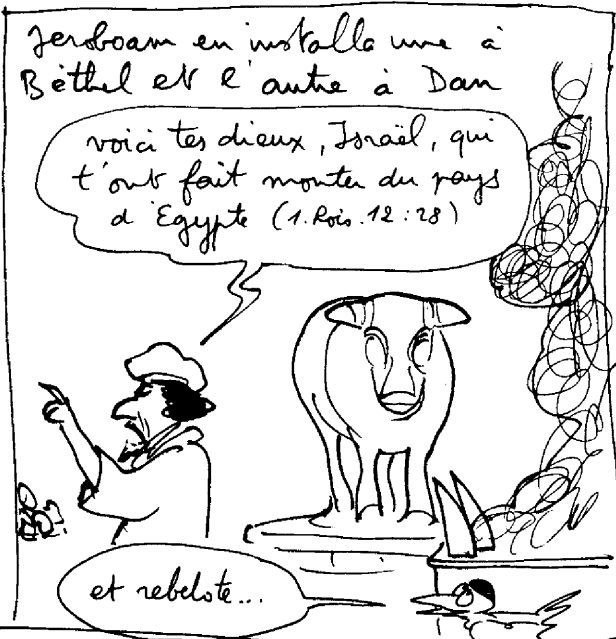 Jeroboam en installa une à
Béthel et l'autre à Dan
voici tes dieux, Israël, qui
t'ont fait monter du pays
d'Egypte (1.Rois.12:28)
et rebelote...